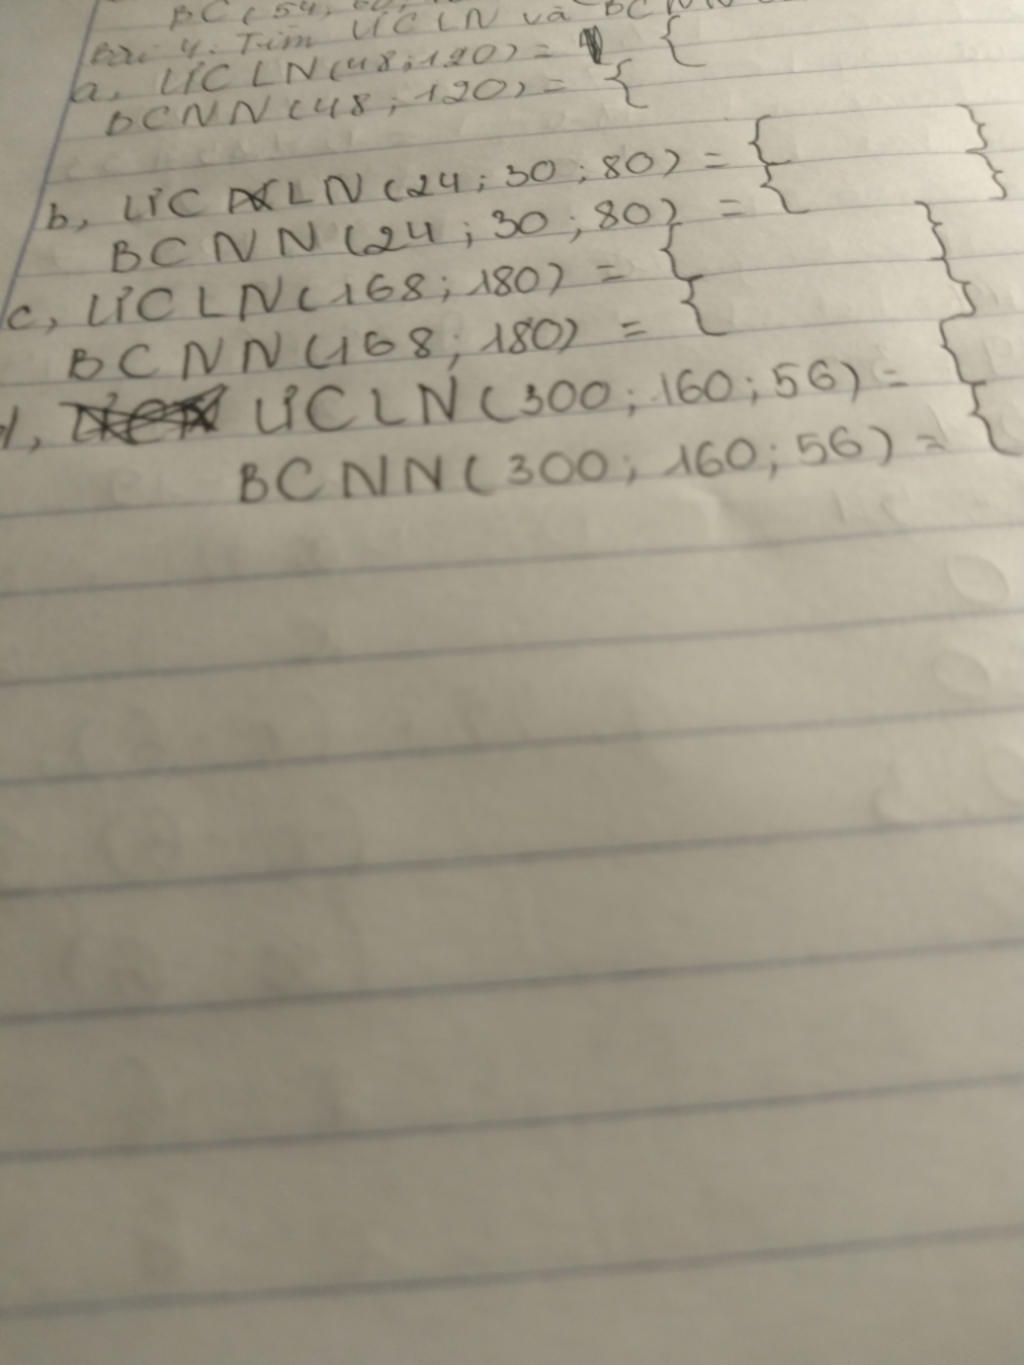 BC(54;
Bài 4. Tìm ƯCLN và BCNN
a, ƯCLN(48;120) = {
BCNN(48;120) = {
b, ƯCLN(24;30;80) = { }
BCNN(24;30;80) = { }
c, ƯCLN(168;180) = { }
BCNN(168;180) = { }
d, ƯCLN(300;160;56) = {
BCNN(300;160;56) = {